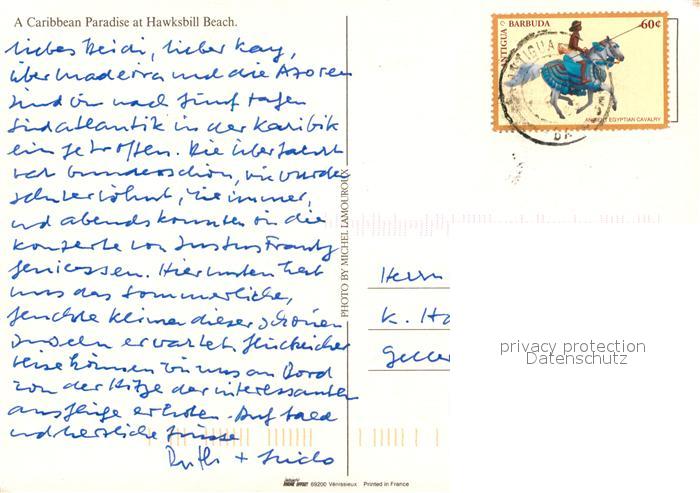 A Caribbean Paradise at Hawksbill Beach.
liebes Heidi, lieber Kay,
über Madeira und die Azoren
sind wir nach fünf Tagen
Südatlantik in der Karibik
eingetroffen. Die Überfahrt
war wunderschön, wir wurden
sehr verwöhnt, wie immer,
und abends konnten wir die
Konzerte von Justus Frantz
geniessen. Hier unten hat
uns das sommerliche,
feuchte Klima dieser schönen
Inseln erwartet. Glücklicher
weise können wir uns an Bord
von der Hitze der interessanten
Ausflüge erholen. Auf bald
und herzliche Grüsse
Ruth +
PHOTO BY MICHEL LAMOUROUX
ANTIGUA BARBUDA 60¢
ANCIENT EGYPTIAN CAVALRY
Herrn
K. Ha
Geller
privacy protection
Datenschutz
69200 Vénissieux Printed in France